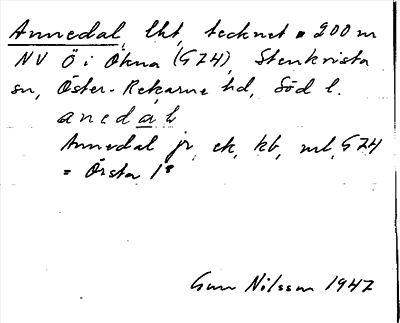 Annedal, lht, tecknet 200 m
NV Ö i Ökna (GZH), Stenkvista
sn, Öster-Rekarne hd, Söd l.
anedaḷ
Annedal jr, ek, kb, ml, GZH
= Örsta 1²
Gun Nilsson 1947